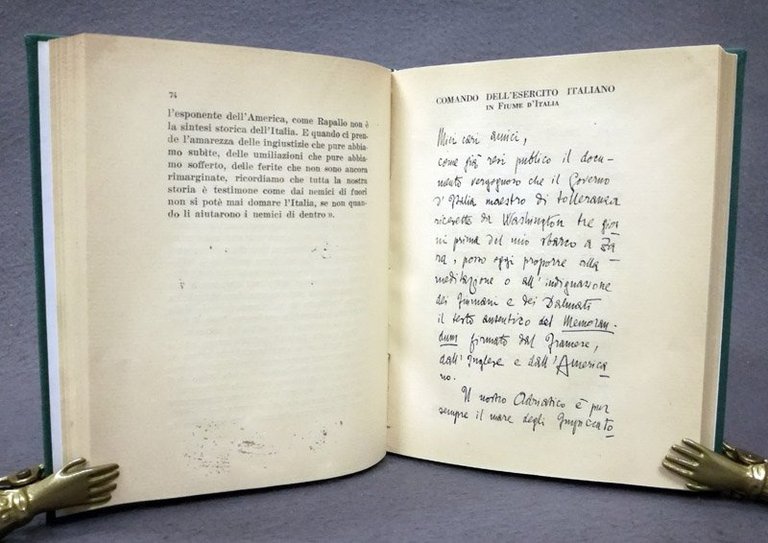 74
l'esponente dell'America, come Rapallo non è
la sintesi storica dell'Italia. E quando ci pren-
de l'amarezza delle ingiustizie che pure abbia-
mo subìte, delle umiliazioni che pure abbia-
mo sofferto, delle ferite che non sono ancora
rimarginate, ricordiamo che tutta la nostra
storia è testimone come dai nemici di fuori
non si potè mai domare l'Italia, se non quan-
do li aiutarono i nemici di dentro ».
COMANDO DELL'ESERCITO ITALIANO
IN FIUME D'ITALIA
Miei cari amici,
come già resi publico il docu-
mento vergognoso che il Governo
d'Italia maestro di tolleranza
ricevette da Washington tre gior-
ni prima del mio sbarco a Za-
ra, posso oggi proporre alla
meditazione o all'indignazione
dei Fiumani e dei Dalmati
il testo autentico del Memoran-
dum firmato dal Francese,
dall'Inglese e dall'America-
no.
Il nostro Adriatico è pur
sempre il mare degli